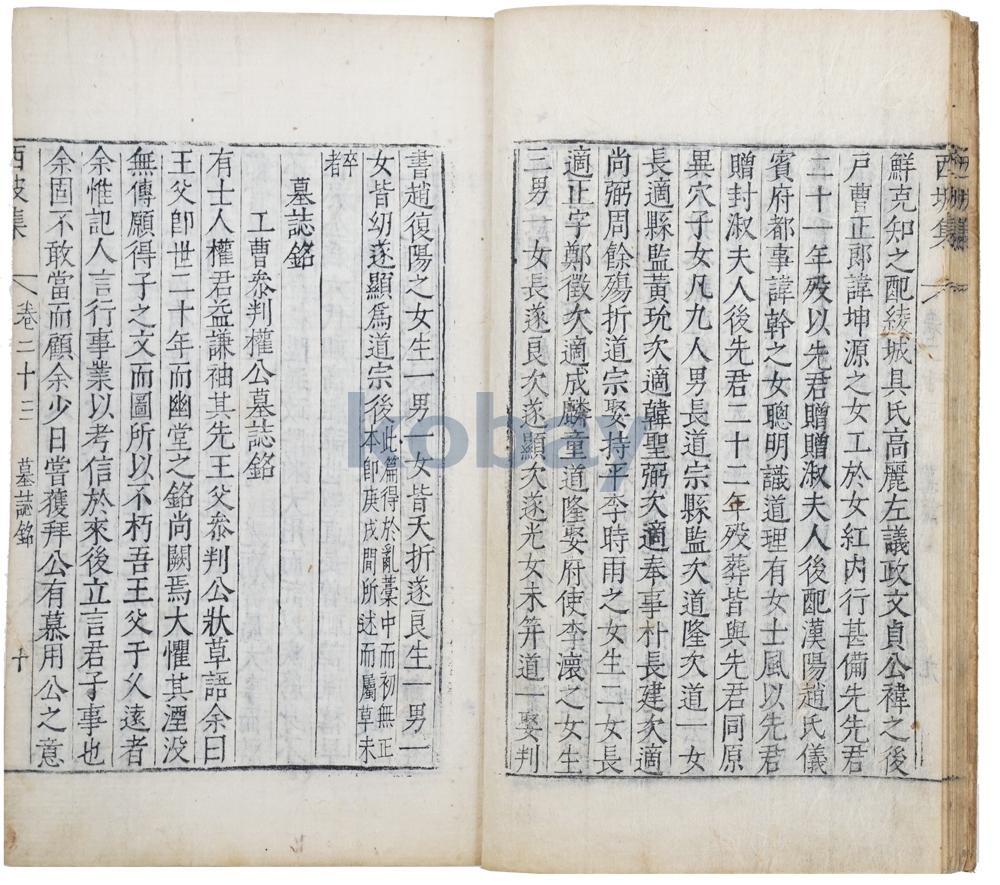 鮮克知之配綾城具氏高麗左議政文貞公禕之後
戶曹正郞諱坤源之女工於女紅內行甚備先先君
二十一年歿以先君贈贈淑夫人後配漢陽趙氏儀
賓府都事諱幹之女聰明識道理有女士風以先君
贈封淑夫人後先君二十二年歿葬皆與先君同原
異穴子女凡九人男長道宗縣監次道隆次道一女
長適縣監黃玧次適韓聖弼次適奉事朴長建次適
尚弼周餘殤折道宗娶持平李時雨之女生二女長
適正字鄭徵次適成麟童道隆娶府使李瀤之女生
三男一女長遂良次遂顯次遂光女未筓道一娶判
書趙復陽之女生一男一女皆夭折遂良生一男一
女皆幼遂顯爲道宗後此篇得於亂藁中而初無正
本卽庚戌間所述而屬草未
卒
者
墓誌銘
工曹叅判權公墓誌銘
有士人權君益謙袖其先王父叅判公狀草語余曰
王父卽世二十年而幽堂之銘尚闕焉大懼其湮沒
無傳願得子之文而圖所以不朽吾王父于久遠者
余惟記人言行事業以考信於來後立言君子事也
余固不敢當而顧余少日嘗獲拜公有慕用公之意
西坡集 卷二十三 墓誌銘 十
kobay